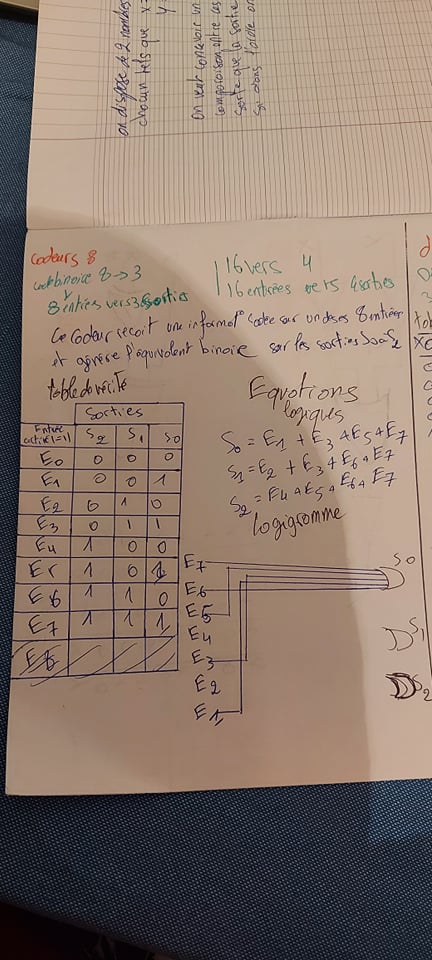 on dispose de 2 nombres
chacun tels que x=
y
on veut concevoir un
comparaison entre ces
sorte que la sortie
si dans l'ordre
Codeurs 8
binaire 8 → 3
8 entrées vers 3 sorties
16 vers 4
16 entrées vers 4 sorties
Le codeur reçoit une informat° codée sur un de ses 8 entrées
et génère l'équivalent binaire sur les sorties S0 à S2
table de vérité
Sorties
Entrée activé(=1) S2 S1 S0
E0 0 0 0
E1 0 0 1
E2 0 1 0
E3 0 1 1
E4 1 0 0
E5 1 0 1
E6 1 1 0
E7 1 1 1
E8
Equations
logiques
S0 = E1 + E3 + E5 + E7
S1 = E2 + E3 + E6 + E7
S2 = E4 + E5 + E6 + E7
logigramme
E7
E6
E5
E4
E3
E2
E1
S0
S1
S2